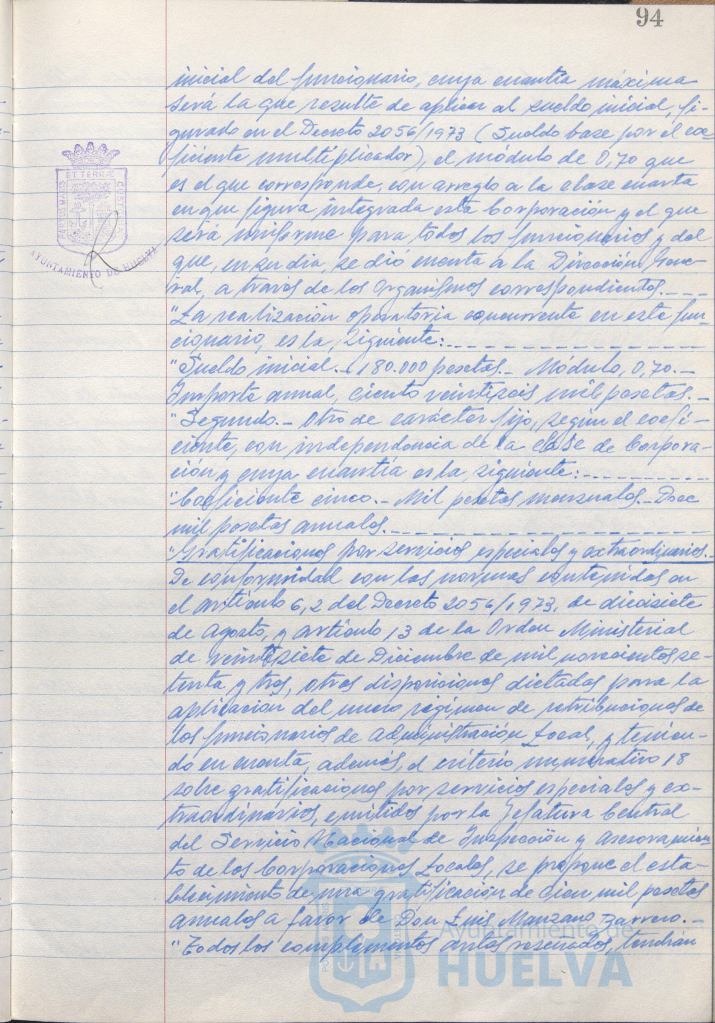 94
inicial del funcionario, cuya cuantía máxima
será la que resulte de aplicar al sueldo inicial, fi-
gurado en el Decreto 2056/1973 (Sueldo base por el coe-
ficiente multiplicador), el módulo de 0,70 que
es el que corresponde, con arreglo a la clase cuarta
en que figura integrada esta Corporación y el que
será uniforme para todos los funcionarios y del
que, en su dia, se dió cuenta a la Dirección Gene-
ral, a través de los Organismos correspondientes.----
"La realización operatoria concurrente en este fun-
cionario, es la siguiente:------------
"Sueldo inicial.- 180.000 pesetas.- Módulo, 0,70.-
Importe anual, ciento veintiseis mil pesetas.-
"Segundo.- Otro de carácter fijo, según el coefi-
ciente, con independencia de la clase de Corpora-
ción y cuya cuantía es la siguiente:--------
"Coeficiente cinco.- Mil pesetas mensuales.- Doce
mil pesetas anuales.------------
"Gratificaciones por servicios especiales y extraordinarios.-
De conformidad con las normas contenidas en
el artículo 6,2 del Decreto 2056/1973, de diecisiete
de Agosto, y artículo 13 de la Orden Ministerial
de veintisiete de Diciembre de mil novecientos se-
tenta y tres, otras disposiciones dictadas para la
aplicación del nuevo régimen de retribuciones de
los funcionarios de Administración Local, y tenien-
do en cuenta, además, el criterio numerativo 18
sobre gratificaciones por servicios especiales y ex-
traordinarios, emitidos por la Jefatura Central
del Servicio Nacional de Inspección y Asesoramien-
to de las Corporaciones Locales, se propone el esta-
blecimiento de una gratificación de cien mil pesetas
anuales a favor de Don Luis Manzano Barrero.-
"Todos los complementos antes reseñados, tendrán
AYUNTAMIENTO DE HUELVA
Ayuntamiento de
HUELVA